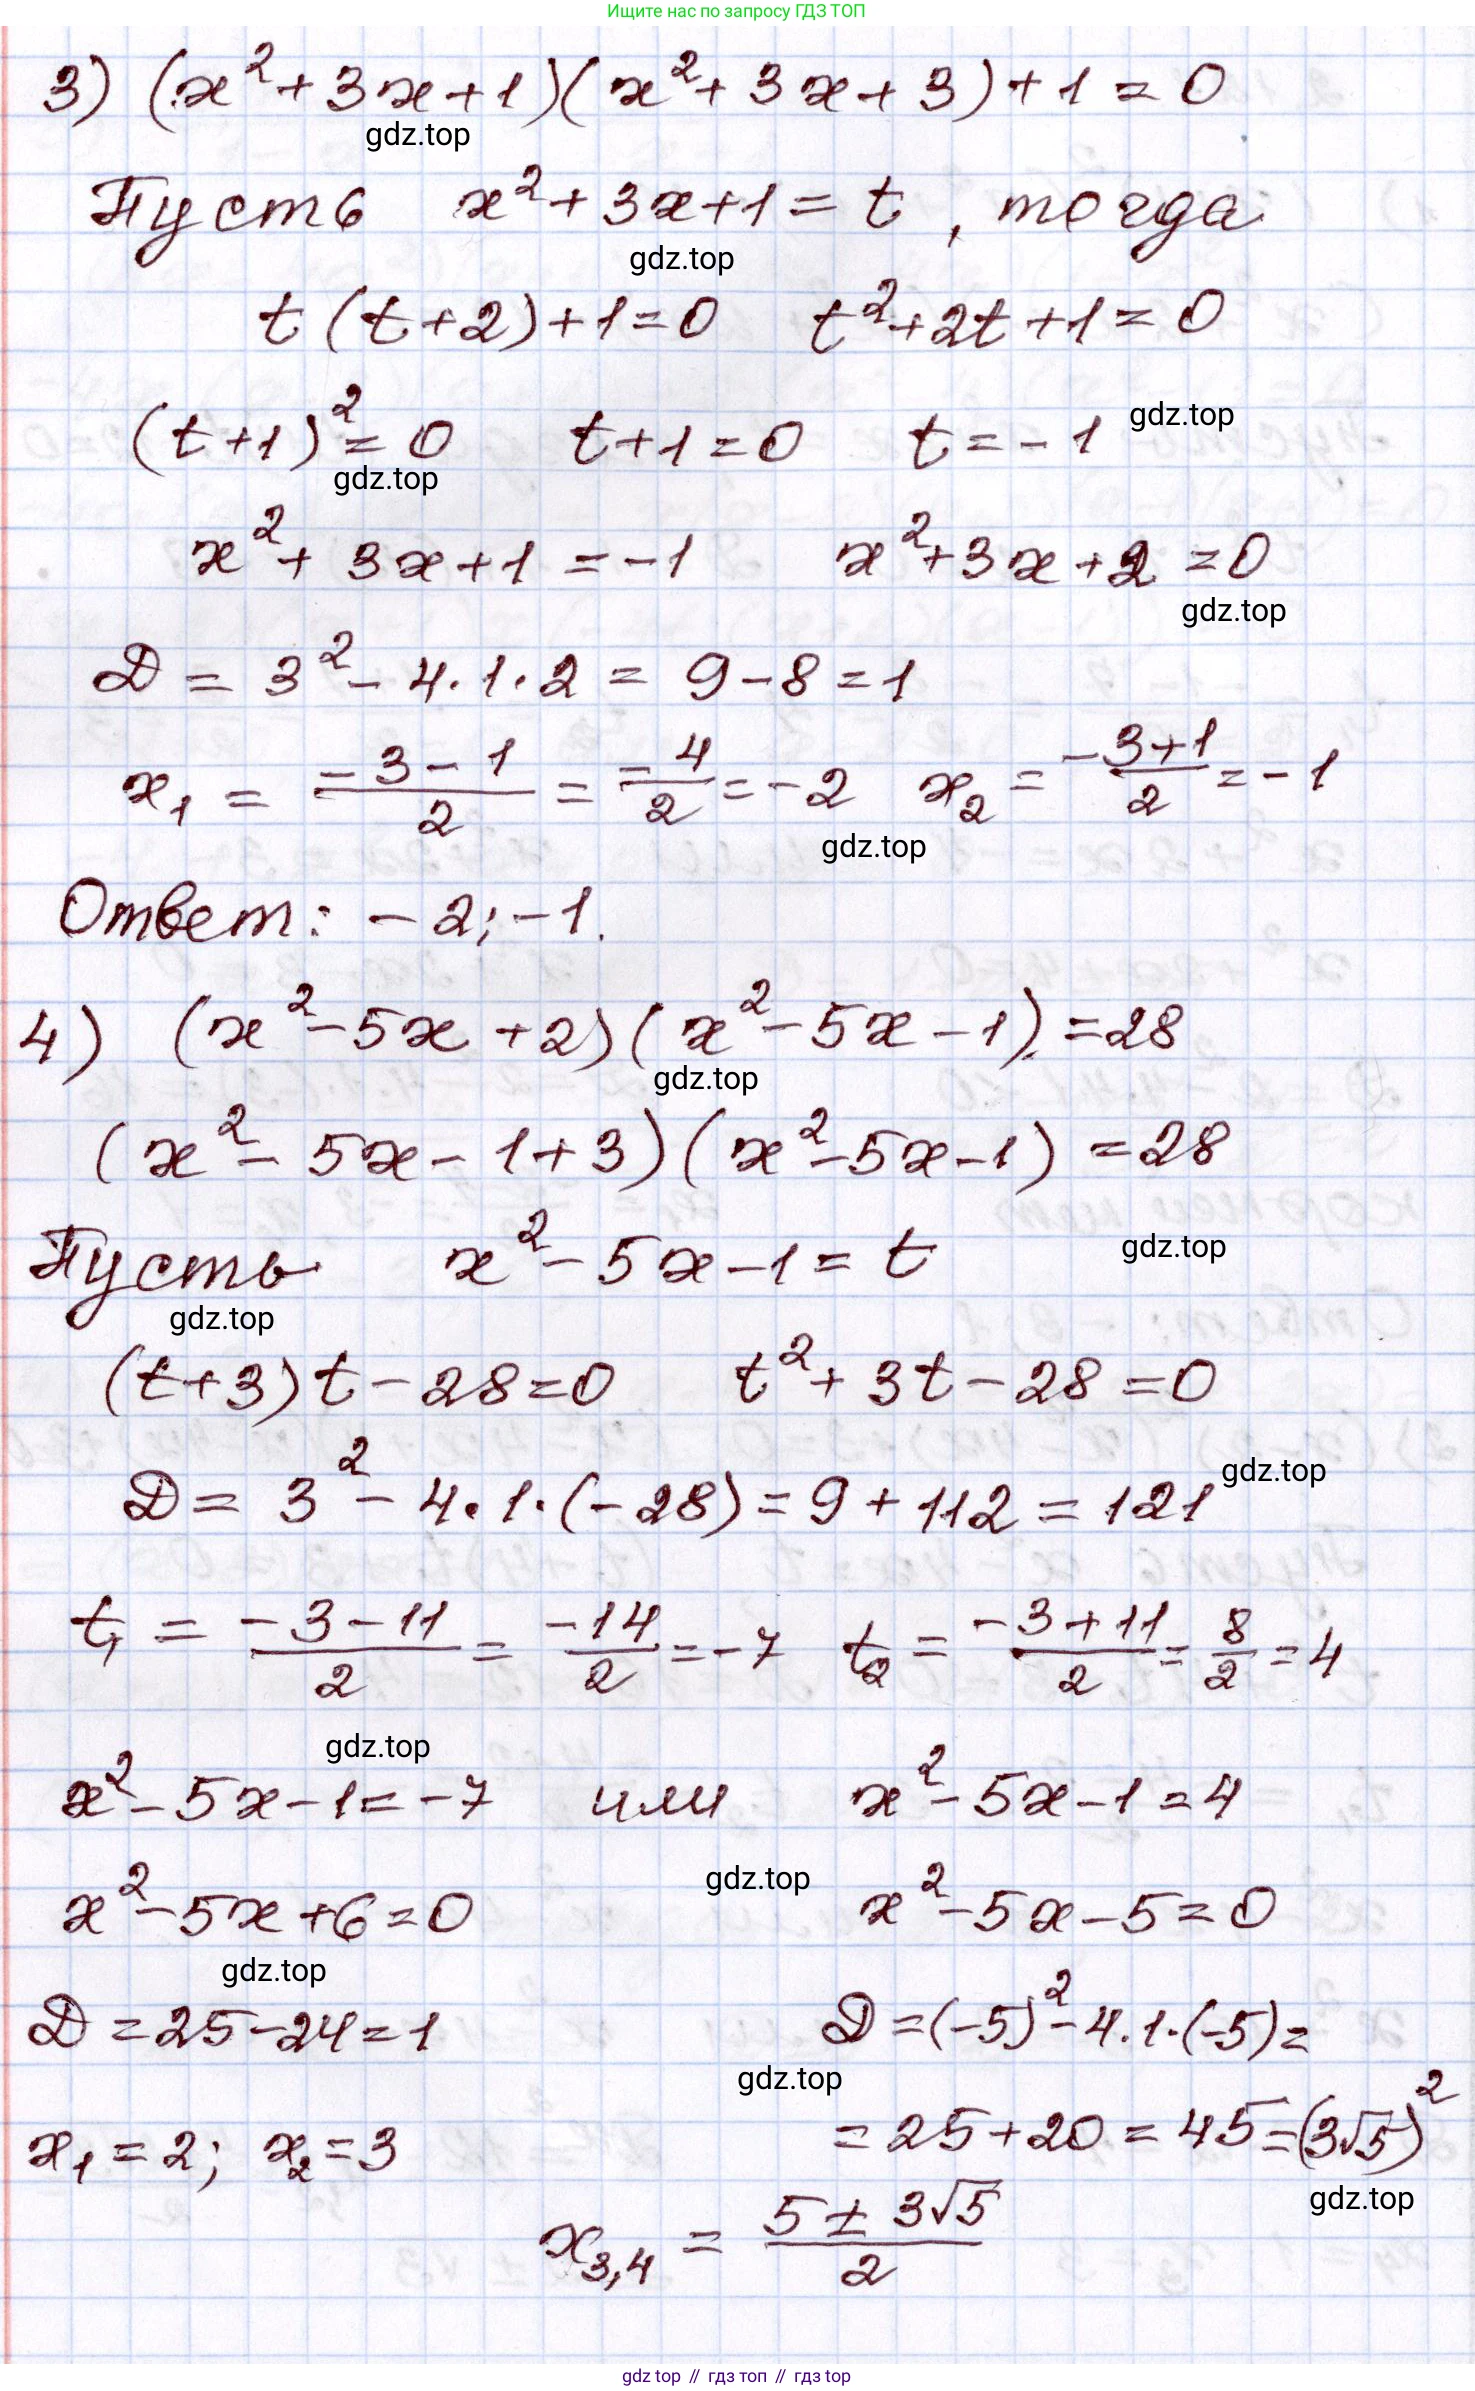 Ищите нас по запросу ГДЗ ТОП
3) (x² + 3x + 1)(x² + 3x + 3) + 1 = 0
gdz.top
Пусть x² + 3x + 1 = t, тогда
gdz.top
t(t + 2) + 1 = 0 t² + 2t + 1 = 0
(t + 1)² = 0 t + 1 = 0 t = -1 gdz.top
gdz.top
x² + 3x + 1 = -1 x² + 3x + 2 = 0
gdz.top
D = 3² - 4·1·2 = 9 - 8 = 1
x₁ = (-3-1)/2 = -4/2 = -2 x₂ = (-3+1)/2 = -1
gdz.top
Ответ: -2; -1.
4) (x² - 5x + 2)(x² - 5x - 1) = 28
gdz.top
(x² - 5x - 1 + 3)(x² - 5x - 1) = 28
Пусть x² - 5x - 1 = t gdz.top
gdz.top
(t + 3)t - 28 = 0 t² + 3t - 28 = 0
gdz.top
D = 3² - 4·1·(-28) = 9 + 112 = 121
t₁ = (-3-11)/2 = -14/2 = -7 t₂ = (-3+11)/2 = 8/2 = 4
gdz.top
x² - 5x - 1 = -7 или x² - 5x - 1 = 4
gdz.top
x² - 5x + 6 = 0 x² - 5x - 5 = 0
gdz.top
D = 25 - 24 = 1 D = (-5)² - 4·1·(-5) =
gdz.top
x₁ = 2; x₂ = 3 = 25 + 20 = 45 = (3√5)²
gdz.top
x₃,₄ = (5 ± 3√5)/2
gdz.top // гдз топ // гдз top